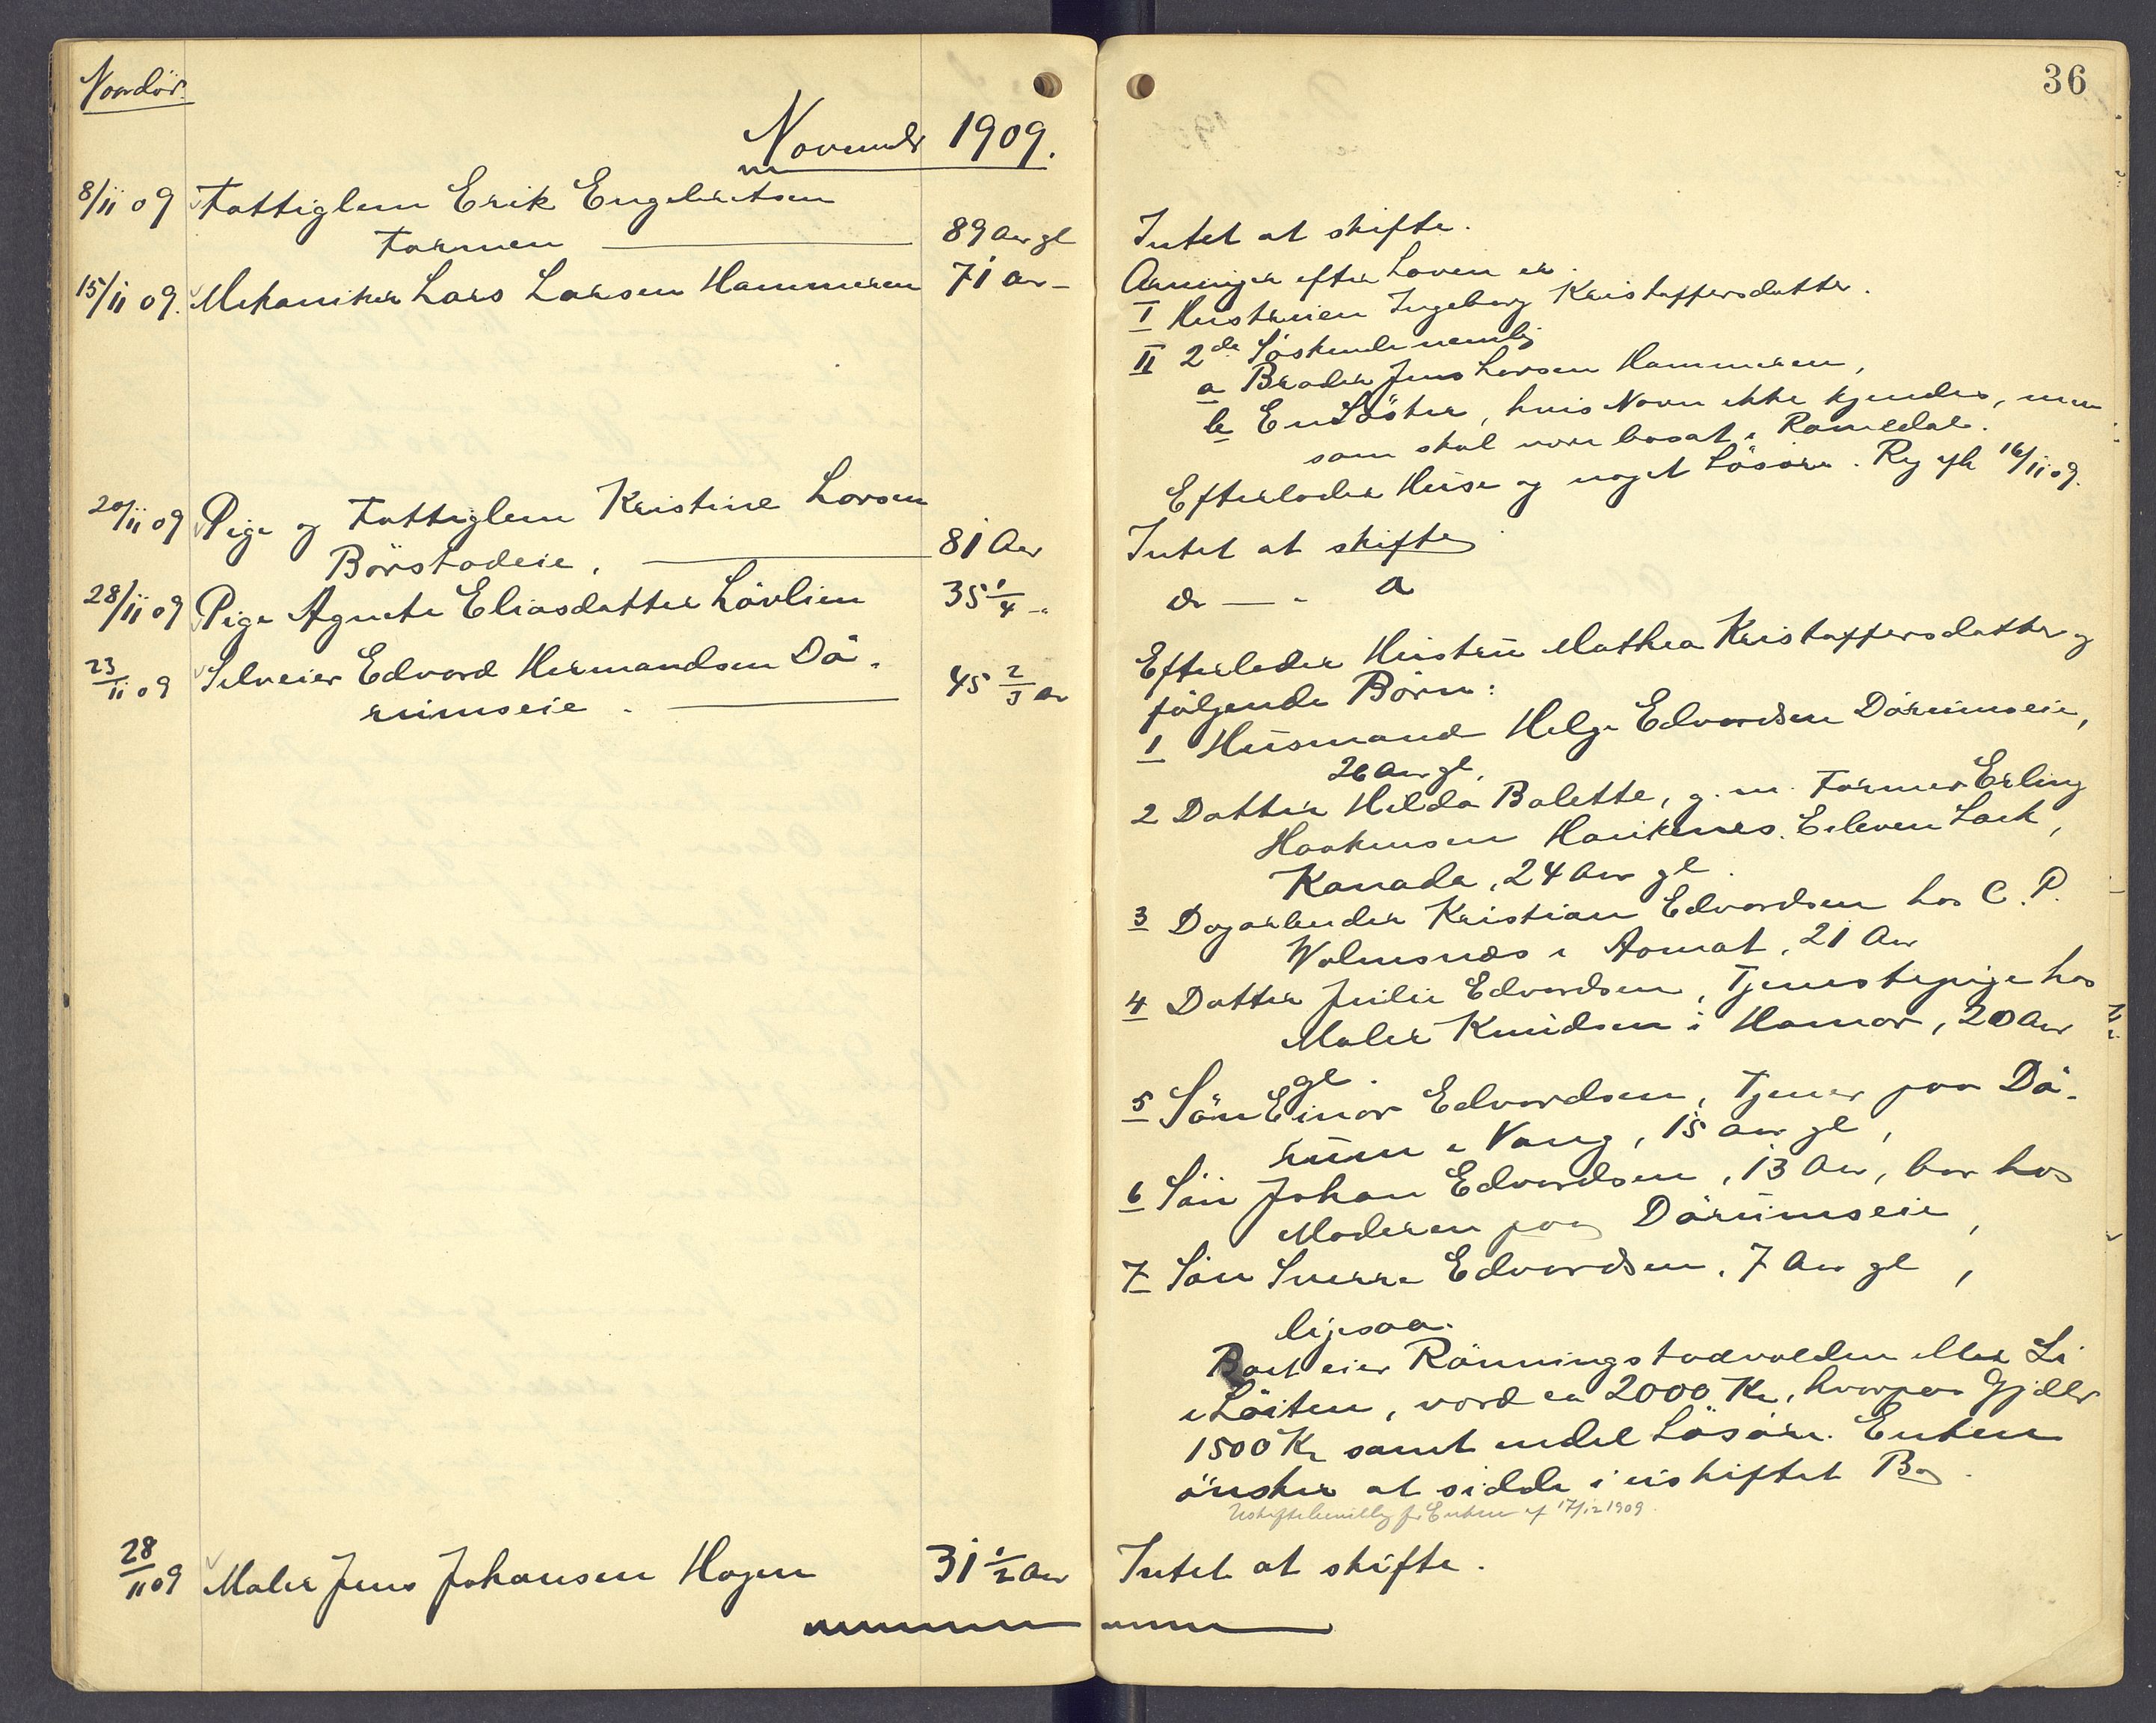 36
Naardör.
November 1909.
8/11 09 Fattiglem Erik Engebretsen
Formen 89 Aar gl
Intet at skifte.
15/11 09. Mekaniker Lars Larsen Hammeren 71 Aar -
Arvinger efter Loven er.
I Hustruen Ingeborg Kristoffersdatter.
II 2de Söskende nemlig
a Broder Jens Larsen Hammeren,
b En Söster, hvis Navn ikke kjendes, men
som skal være bosat i Romedal.
Efterlader Huse og noget Lösöre. Reg 16/11 09.
20/11 09 Pige og Fattiglem Kristine Larsen
Börstadeie. 81 Aar
Intet at skifte
28/11 09 Pige Agnete Eliasdatter Lövlien 35 1/4 -"
do — " — o
23/11 09 Selveier Edvard Hermandsen Dö-
rumseie. 45 2/3 Aar
Efterlader Hustru Mathea Kristoffersdatter og
fölgende Börn:
1 Husmand Helge Edvardsen Dörumseie,
26 Aar gl.
2 Datter Hilda Balette, g. m. Farmer Erling
Haakensen Haukenes. Eleven Lack,
Kanada, 24 Aar gl.
3 Dagarbeider Kristian Edvardsen hos C. P.
Wolmsnæs i Aamot, 21 Aar
4 Datter Julie Edvardsen, Tjenestepige hos
Maler Knudsen i Hamar, 20 Aar
gl.
5 Sön Einar Edvardsen, Tjener paa Dö-
rum i Vang, 15 Aar gl,
6 Sön Johan Edvardsen, 13 Aar, bor hos
Moderen paa Dörumseie,
7 Sön Sverre Edvardsen, 7 Aar gl,
ligesaa.
Boet eier Rönningstadvolden eller Li
i Löiten, værd ca 2000 Kr, hvorpaa Gjæld
1500 Kr samt endel Lösöre. Enken
önsker at sidde i uskiftet Bo.
Uskiftebevilling for Enken af 17/12 1909.
28/11 09 Maler Jens Johansen Hagen 31 1/2 Aar
Intet at skifte.